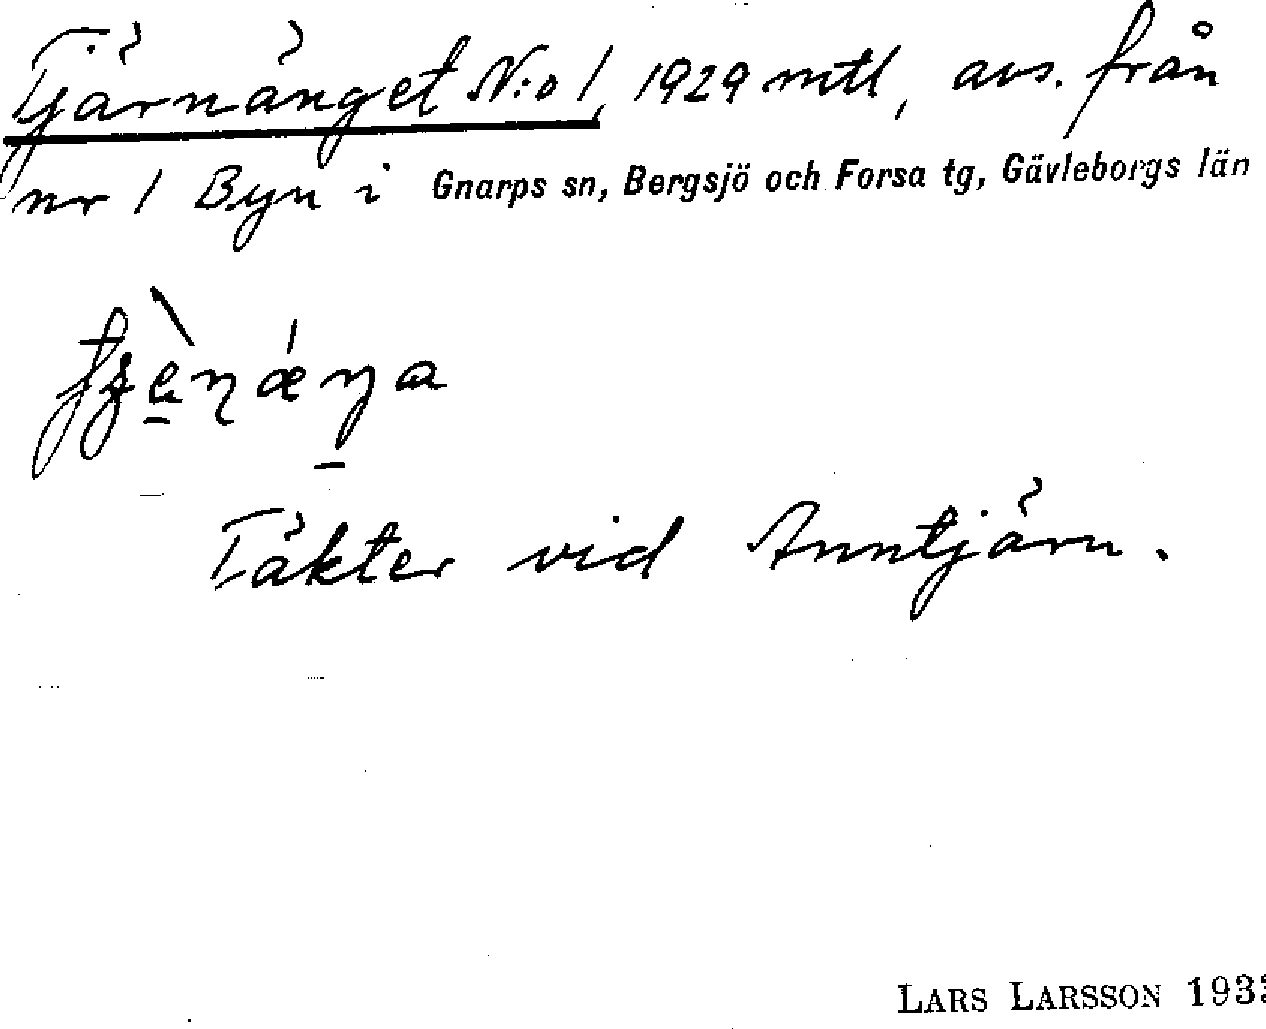 Tjärnänget N:o 1, 1929 mtl, avs. från
nr 1 Byn i Gnarps sn, Bergsjö och Forsa tg, Gävleborgs län
Täkter vid Anntjärn.
LARS LARSSON 193